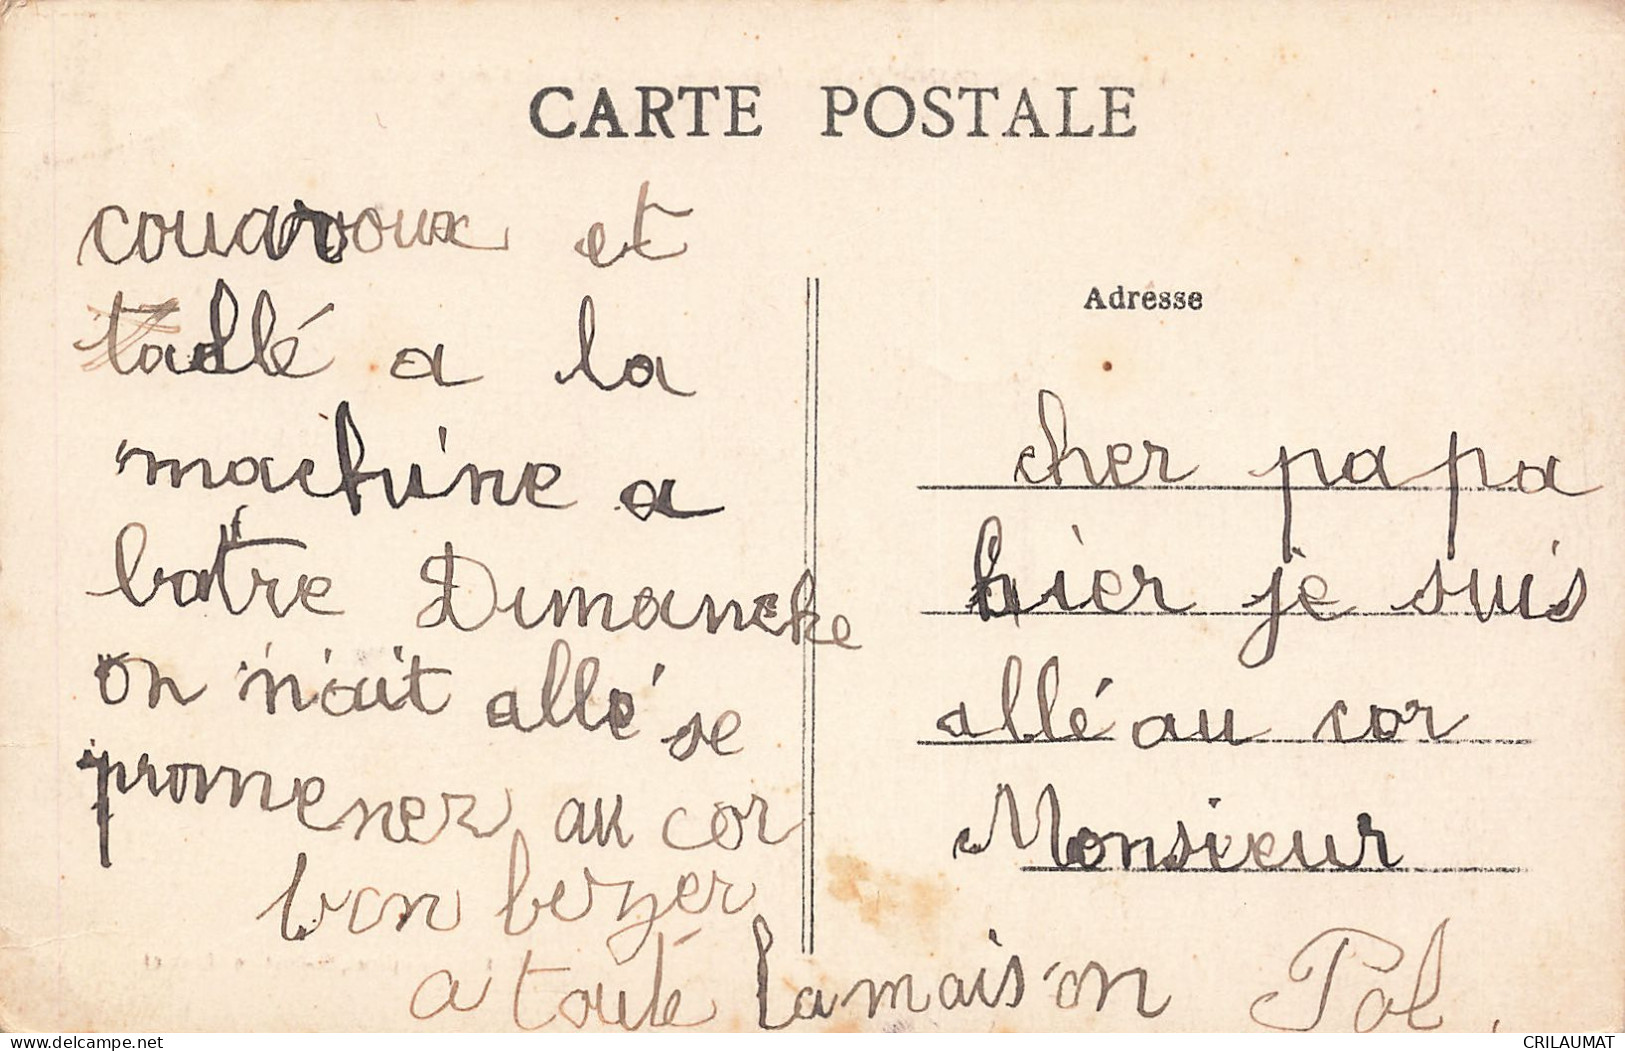 CARTE POSTALE
Adresse
cher papa
hier je suis
allé au cor
Monsieur
et
a la
machine a
batre Dimanche
on n'ait allé se
promener au cor
bon berzer
a toute la maison Pol.
CRILAUMAT